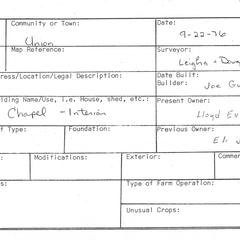 Community or Town:
Date:
Union
9-22-76
Map Reference:
Surveyor:
Leigha + Doug
ress/Location/Legal Description:
Date Built:
Builder:
Joe Gu
lding Name/Use, i.e. House, shed, etc.:
Present Owner:
Chapel - Interior
Lloyd Ev
t Type:
Foundation:
Previous Owner:
Eli J
Modifications:
Exterior:
Comme
s:
Type of Farm Operation:
Unusual Crops: